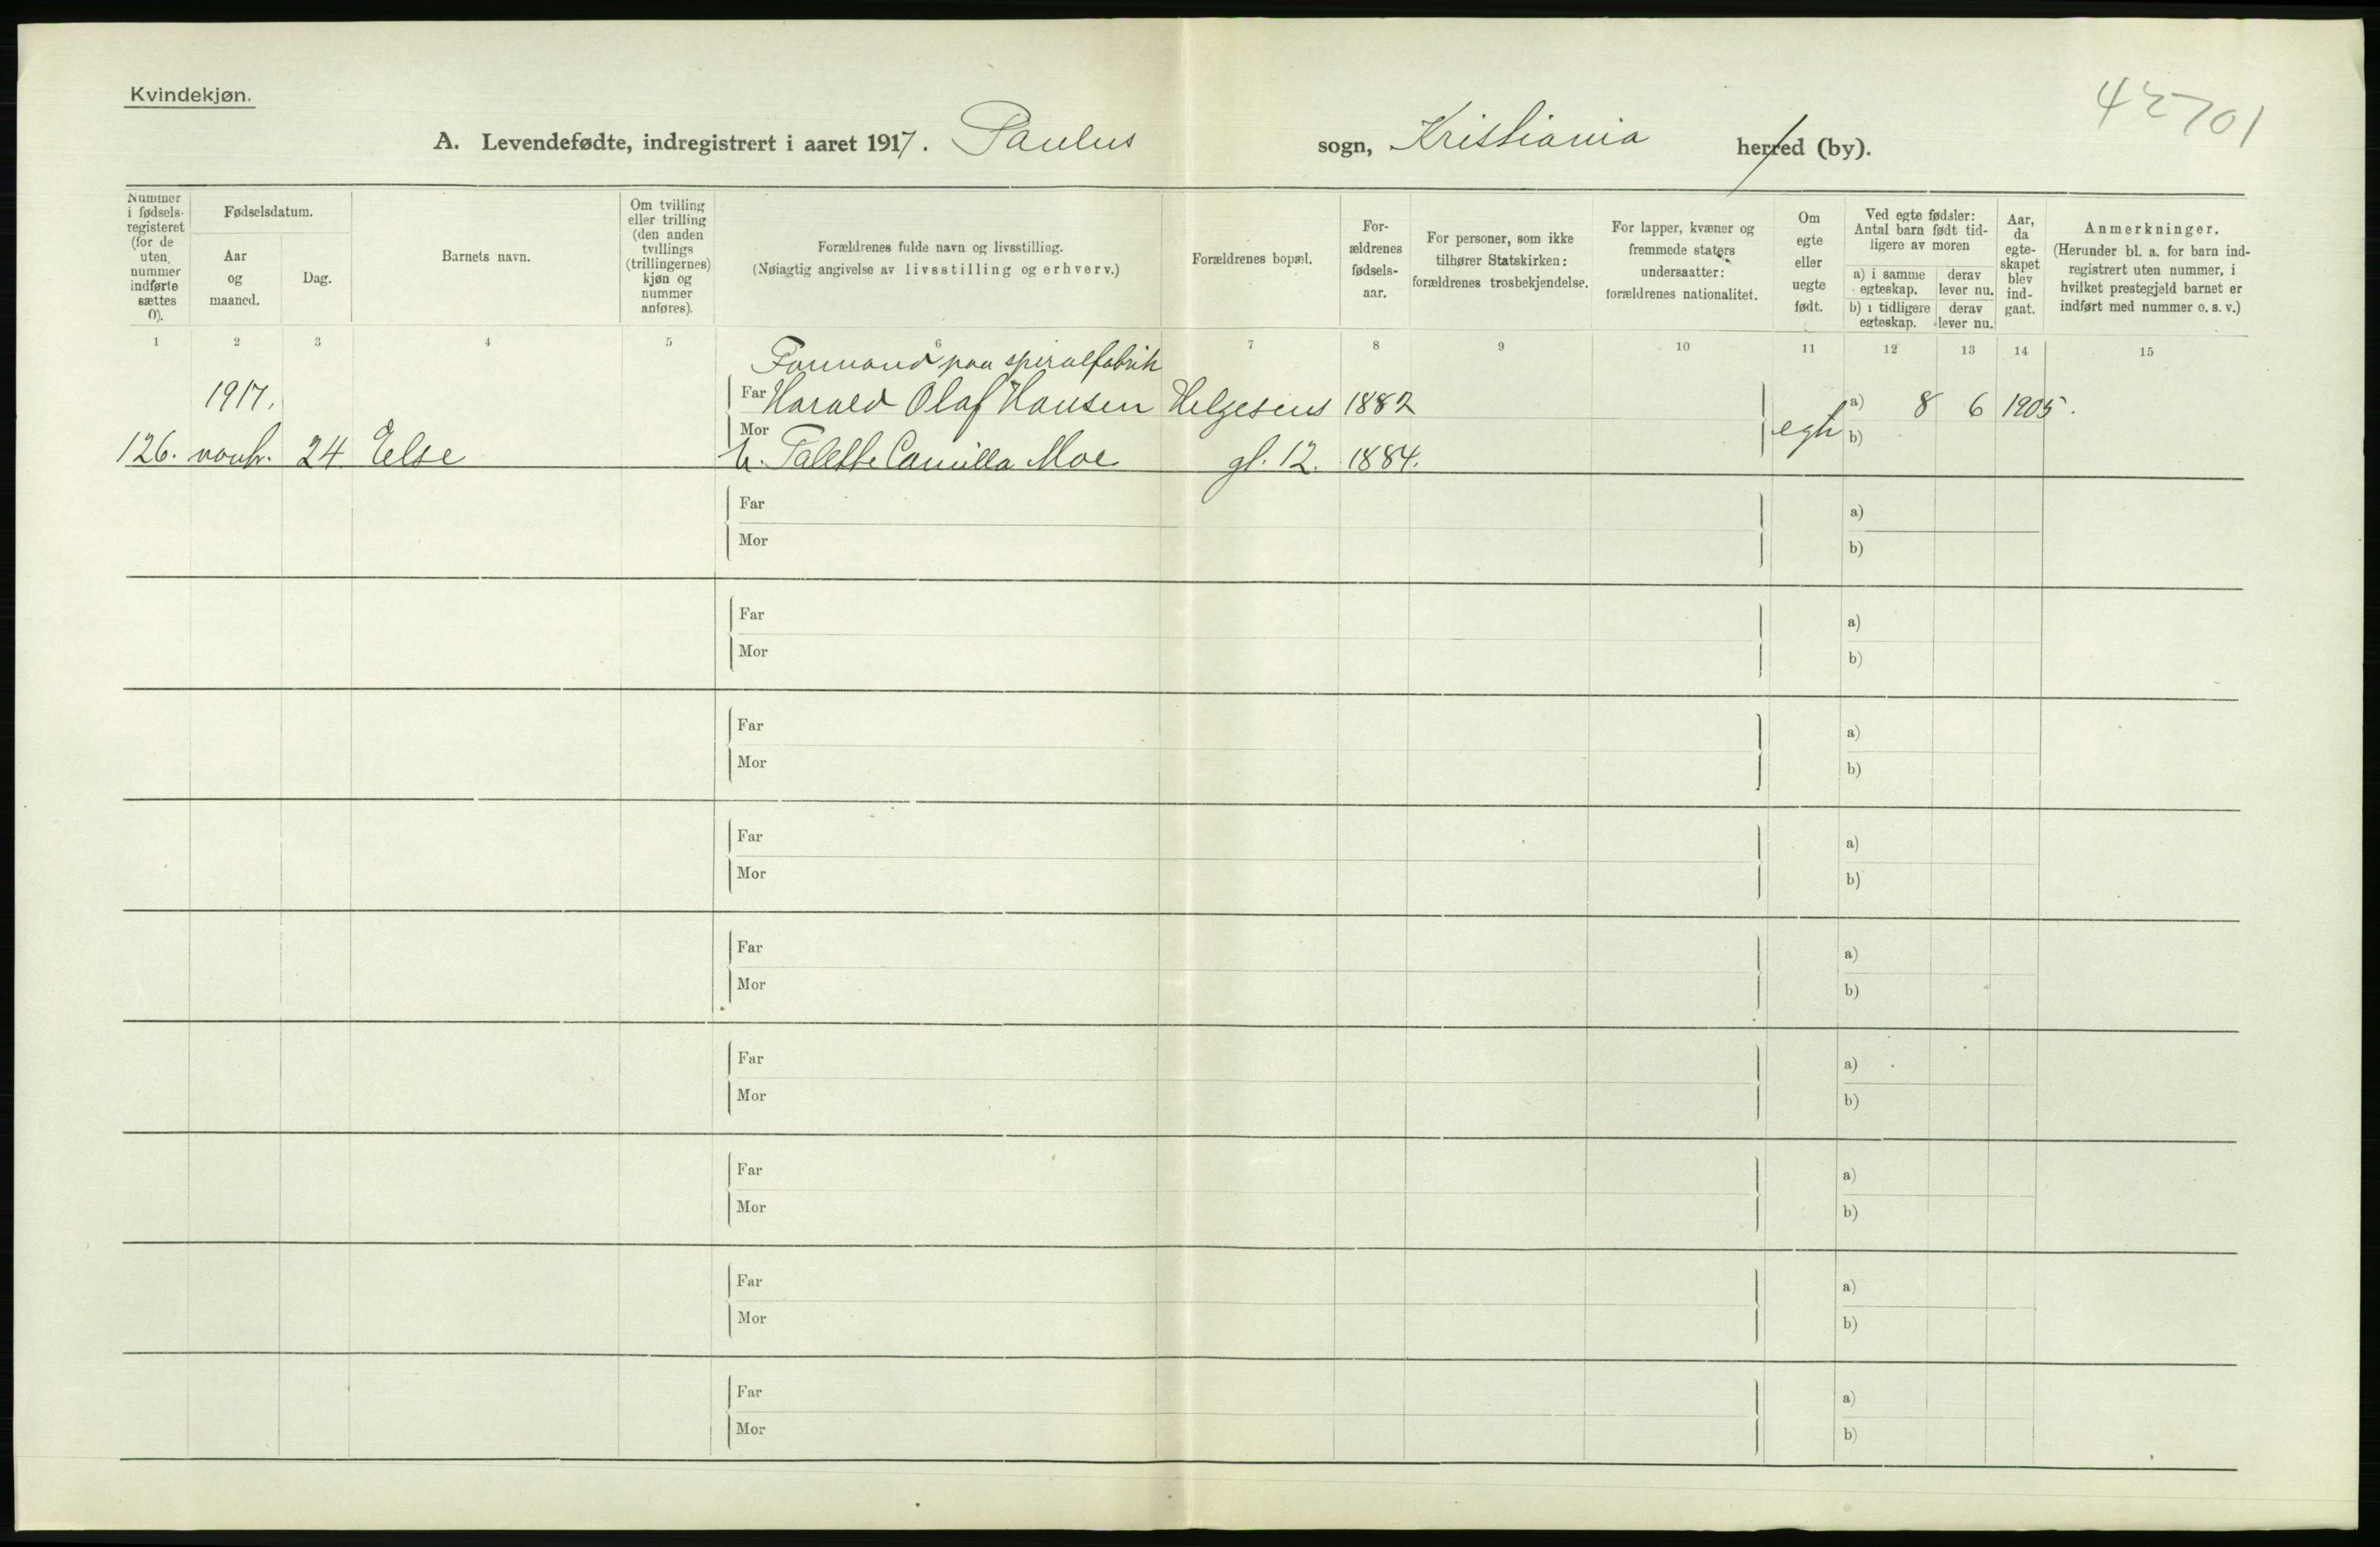 Kvindekjøn.
42701
A. Levendefødte, indregistrert i aaret 1917. Paulus sogn, Kristiania herred (by).
Nummer i fødselsregisteret (for de uten nummer indførte sættes 0).
Fødselsdatum.
Aar og maaned.
Dag.
Barnets navn.
Om tvilling eller trilling (den anden tvillings (trillingernes) kjøn og nummer anføres).
Forældrenes fulde navn og livsstilling.
(Nøiagtig angivelse av livsstilling og erhverv.)
Forældrenes bopæl.
Forældrenes fødselsaar.
For personer, som ikke tilhører Statskirken: forældrenes trosbekjendelse.
For lapper, kvæner og fremmede staters undersaatter: forældrenes nationalitet.
Om egte eller uegte født.
Ved egte fødsler: Antal barn født tidligere av moren
a) i samme egteskap.
derav lever nu.
b) i tidligere egteskap.
derav lever nu.
Aar, da egteskapet blev indgaat.
Anmerkninger.
(Herunder bl. a. for barn indregistrert uten nummer, i hvilket prestegjeld barnet er indført med nummer o. s. v.)
1 2 3 4 5 6 7 8 9 10 11 12 13 14 15
Formand paa spiralfabrik
1917. Far Harald Olaf Hansen Helgesens 1882 a) 8 6 1905.
Mor egte b)
126. novbr. 24 Else h. Talette Camilla Moe. gt. 12. 1884.
Far a)
Mor b)
Far a)
Mor b)
Far a)
Mor b)
Far a)
Mor b)
Far a)
Mor b)
Far a)
Mor b)
Far a)
Mor b)
Far a)
Mor b)
Far a)
Mor b)